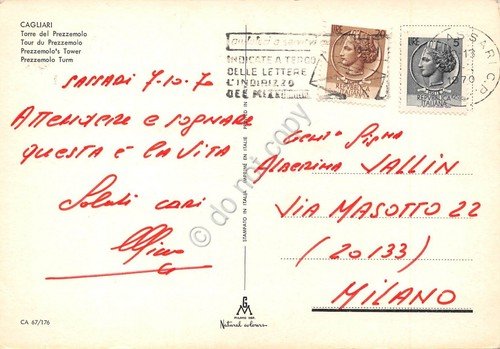 CAGLIARI
Torre del Prezzemolo
Tour du Prezzemolo
Prezzemolo's Tower
Prezzemolo Turm
SASSARI 7-10-70
ATTENDERE E SOGNARE
QUESTA È LA VITA
Saluti cari
INDICATE A TERGO
DELLE LETTERE
L'INDIRIZZO
DEL
LIRE 20
LIRE 5
ITALIANA
SASSARI C.P.
13
1970
Gent. Sig.na
ALBERINA VALLIN
VIA MASOTTO 22
(20133)
MILANO
do not copy
STAMPATO IN ITALIA - IMPRIMÉ EN ITALIE - PRINTED IN ITALY
GM
MILANO
Natural colours
CA 67/176